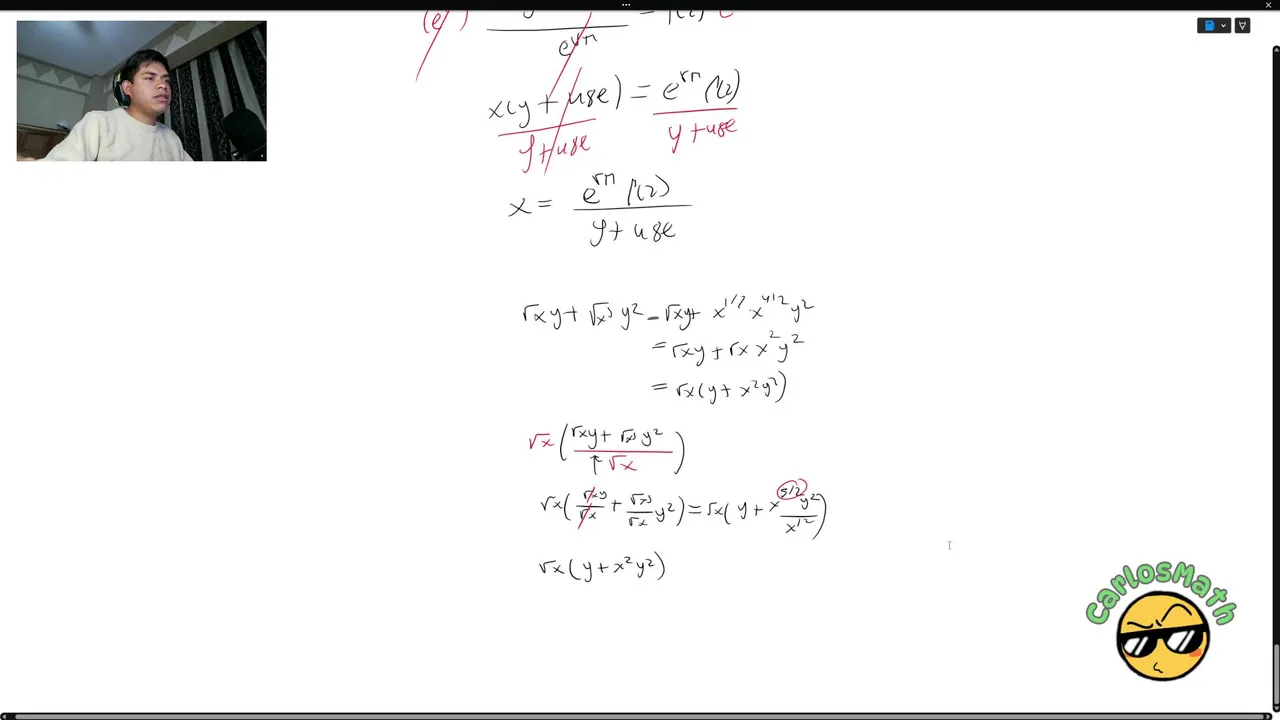 x(y + use) = e^{√π} Γ(2)
y+use y+use
x = e^{√π} Γ(2)
y+ use
√x y + √x⁵ y² = √x y + x^{1/2} · x^{4/2} y²
= √x y + √x x² y²
= √x (y + x² y²)
√x ( √x y + √x⁵ y² )
↑ √x
√x ( √x y / √x + √x⁵ / √x y² ) = √x ( y + x^{5/2} y² / x^{1/2} )
√x ( y + x² y² )
CarlosMath